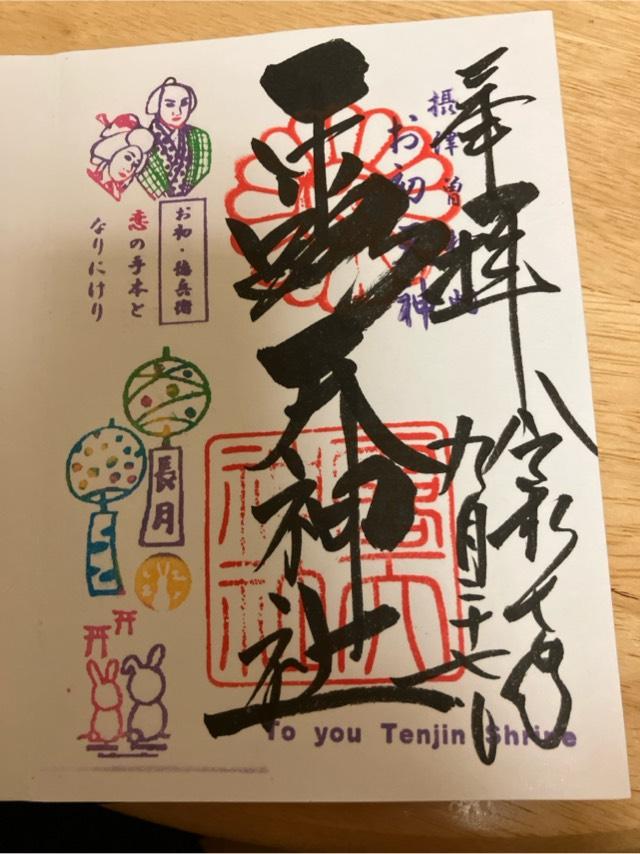 奉拝
令和七年
九月二十七日
摂津曽
お初天神
露天神社
お初・徳兵衛
恋の手本と
なりにけり
長月
To you Tenjin Shrine